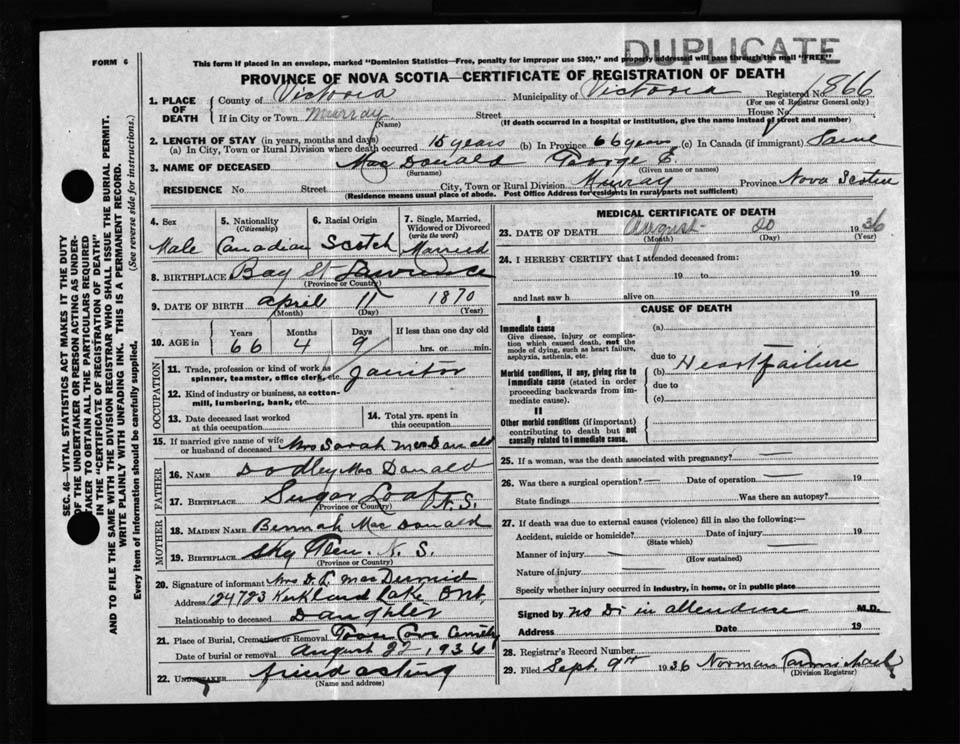 DUPLICATE
FORM 6
This form if placed in an envelope, marked "Dominion Statistics—Free, penalty for improper use $300," and properly addressed will pass through the mail "FREE"
PROVINCE OF NOVA SCOTIA—CERTIFICATE OF REGISTRATION OF DEATH
1. PLACE OF DEATH
County of Victoria Municipality of Victoria Registered No. 1866
(For use of Registrar General only)
If in City or Town Murray Street House No.
(Name) (If death occurred in a hospital or institution, give the name instead of street and number)
2. LENGTH OF STAY (in years, months and days)
(a) In City, Town or Rural Division where death occurred 15 years (b) In Province 66 years (c) In Canada (if immigrant) Same
3. NAME OF DECEASED Mac Donald George E.
(Surname) (Given name or names)
RESIDENCE No Street City, Town or Rural Division Murray Province Nova Scotia
(Residence means usual place of abode. Post Office Address for residents in rural parts not sufficient)
4. Sex Male
5. Nationality (Citizenship) Canadian
6. Racial Origin Scotch
7. Single, Married, Widowed or Divorced (write the word) Married
8. BIRTHPLACE Bay St. Lawrence
(Province or Country)
9. DATE OF BIRTH April 11 1870
(Month) (Day) (Year)
10. AGE in Years 66 Months 4 Days 9 If less than one day old hrs. or min.
OCCUPATION
11. Trade, profession or kind of work as spinner, teamster, office clerk, etc. Janitor
12. Kind of industry or business, as cotton-mill, lumbering, bank, etc.
13. Date deceased last worked at this occupation
14. Total yrs. spent in this occupation
15. If married give name of wife or husband of deceased Mrs Sarah MacDonald
FATHER
16. NAME Dodley Mac Donald
17. BIRTHPLACE Sugar Loaf N.S.
(Province or Country)
MOTHER
18. MAIDEN NAME Bennah Mac Donald
19. BIRTHPLACE Sky Glen. N. S.
(Province or Country)
20. Signature of informant Mrs D. A. MacDermid
Address 124723 Kerkland Lake Ont.
Relationship to deceased Daughter
21. Place of Burial, Cremation or Removal Cove Cemetry
Date of burial or removal August 22, 1936
22. UNDERTAKER friend acting
(Name and address)
MEDICAL CERTIFICATE OF DEATH
23. DATE OF DEATH August 20 1936
(Month) (Day) (Year)
24. I HEREBY CERTIFY that I attended deceased from:
19 to 19
and last saw h alive on 19
CAUSE OF DEATH
I
Immediate cause
Give disease, injury or complication which caused death, not the mode of dying, such as heart failure, asphyxia, asthenia, etc.
(a)
due to
Morbid conditions, if any, giving rise to immediate cause (stated in order proceeding backwards from immediate cause).
(b) Heart failure
due to
(c)
II
Other morbid conditions (if important) contributing to death but not causally related to immediate cause.
25. If a woman, was the death associated with pregnancy? —
26. Was there a surgical operation? — Date of operation — 19
State findings Was there an autopsy?
27. If death was due to external causes (violence) fill in also the following:—
Accident, suicide or homicide? Date of injury 19
(State which)
Manner of injury
(How sustained)
Nature of injury
Specify whether injury occurred in industry, in home, or in public place
Signed by no Dr in attenduse M.D.
Address Date 19
28. Registrar's Record Number
29. Filed Sept. 9th 1936 Norman Carmichael
(Division Registrar)
SEC. 46—VITAL STATISTICS ACT MAKES IT THE DUTY
OF THE UNDERTAKER OR PERSON ACTING AS UNDER-
TAKER TO OBTAIN ALL THE PARTICULARS REQUIRED
IN THE "CERTIFICATE OF REGISTRATION OF DEATH"
AND TO FILE THE SAME WITH THE DIVISION REGISTRAR WHO SHALL ISSUE THE BURIAL PERMIT.
WRITE PLAINLY WITH UNFADING INK. THIS IS A PERMANENT RECORD.
Every item of information should be carefully supplied. (See reverse side for instructions.)